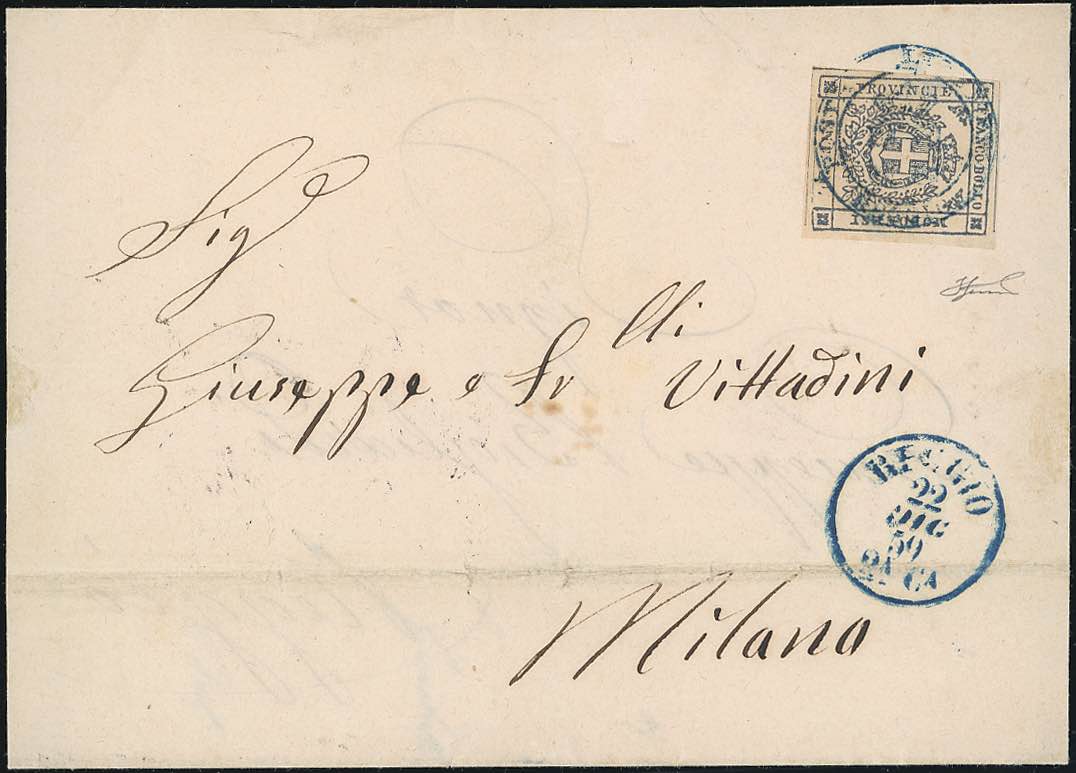 PROVINCIE
FRANCO BOLLO
Sig
Giuseppe e Fr lli Vittadini
REGGIO
22
DIC
59
Milano